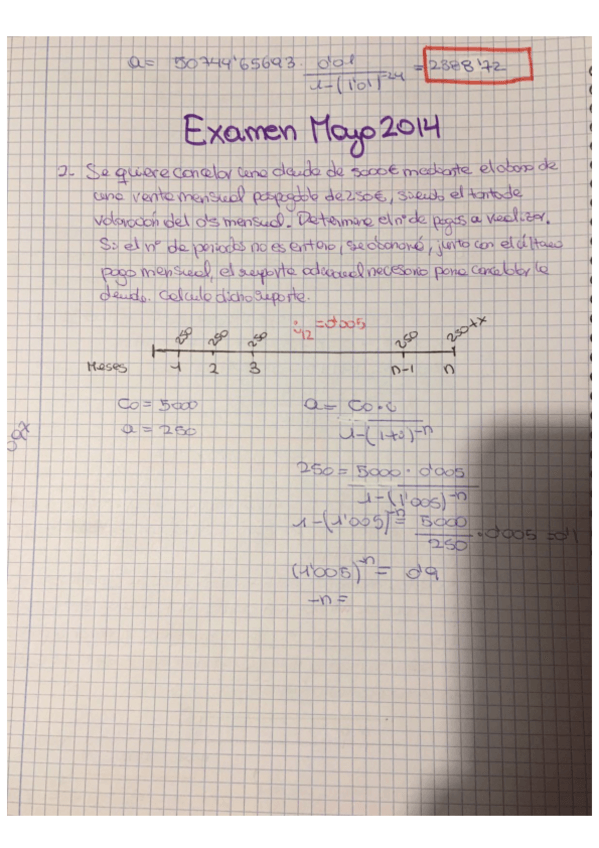 a = 50744'65693 · 0'01 / 1-(1'01)^-24 = 2388'72
Examen Mayo 2014
2- Se quiere cancelar una deuda de 5000€ mediante el abono de
una renta mensual pospagable de 250€, siendo el tanto de
valoración del 0'5 mensual. Determine el nº de pagos a realizar.
Si el nº de periodos no es entero, se abonará, junto con el último
pago mensual, el importe adicional necesario para cancelar la
deuda. Calcule dicho importe.
i12 = 0'005
250 250 250 250 250+x
Meses 1 2 3 n-1 n
Co = 5000
a = 250
a = Co·i / 1-(1+i)^-n
250 = 5000 · 0'005 / 1-(1'005)^-n
1-(1'005)^-n = 5000 / 250 · 0'005 = 0'1
(1'005)^-n = 0'9
-n =